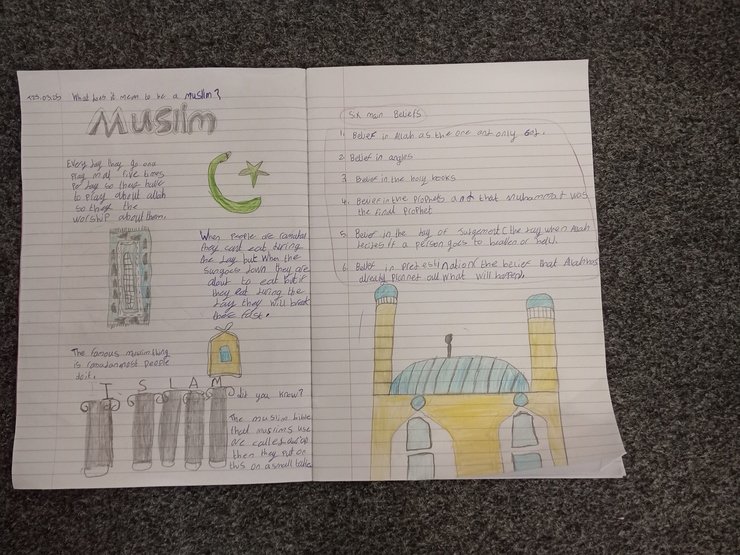 What does it mean to be a Muslim?
Muslim
Every day they go and
pray mat five times
Per day so they have
to pray about allah
so things the
worship about them.
When People are ramadan
they cant eat during
the day but when the
sun goes down they are
alout to eat but if
they eat during the
day they will break
there fast.
The famous muslim thing
is ramadan most people
do it.
ISLAM
did you know?
The muslim bible
that muslims use
are called
then they put on
this on a small table
Six main Beliefs
1. Belief in Allah as the one and only God.
2. Belief in angles
3. Belief in the holy books
4. Belief in the Prophets and that Muhammat was
the final Prophet
5. Belief in the day of Judgement (the day when Allah
decides if a person goes to heaven or hell.
6. Belief in (the belief that Allah has
already planned all what will happen.